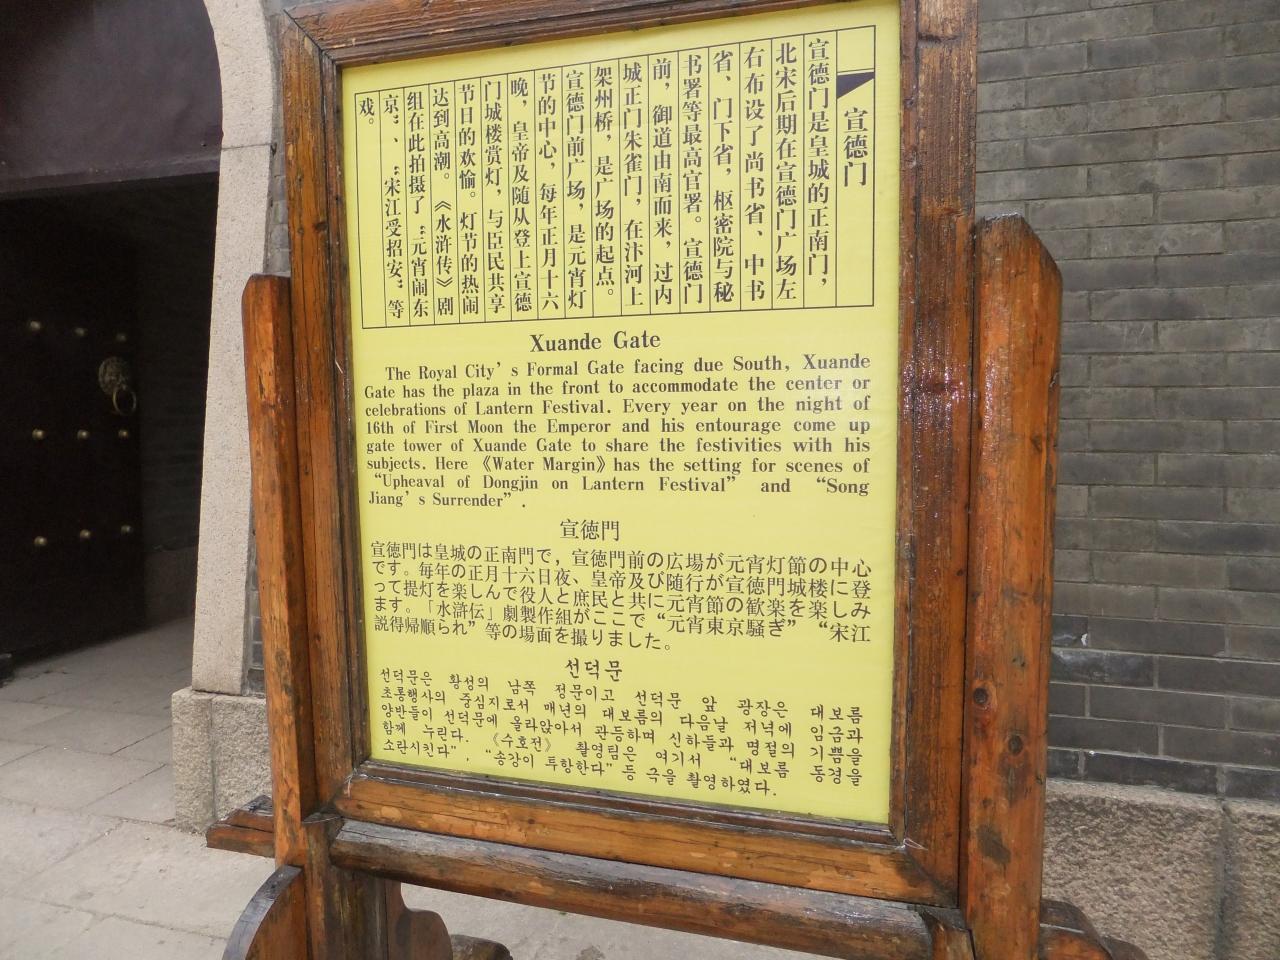 宣德门
宣德门是皇城的正南门，
北宋后期在宣德门广场左
右布设了尚书省、中书
省、门下省，枢密院与秘
书署等最高官署。宣德门
前，御道由南而来，过内
城正门朱雀门，在汴河上
架州桥，是广场的起点。
宣德门前广场，是元宵灯
节的中心，每年正月十六
晚，皇帝及随从登上宣德
门城楼赏灯，与臣民共享
节日的欢愉。灯节的热闹
达到高潮。《水浒传》剧
组在此拍摄了“元宵闹东
京”、“宋江受招安”等
戏。
Xuande Gate
The Royal City's Formal Gate facing due South, Xuande
Gate has the plaza in the front to accommodate the center or
celebrations of Lantern Festival. Every year on the night of
16th of First Moon the Emperor and his entourage come up
gate tower of Xuande Gate to share the festivities with his
subjects. Here 《Water Margin》has the setting for scenes of
“Upheaval of Dongjin on Lantern Festival” and “Song
Jiang's Surrender”.
宣徳門
宣徳門は皇城の正南門で，宣徳門前の広場が元宵灯節の中心
です。毎年の正月十六日夜、皇帝及び随行が宣徳門城楼に登
って提灯を楽しんで役人と庶民と共に元宵節の歓楽を楽しみ
ます。「水滸伝」劇製作組がここで“元宵東京騒ぎ” “宋江
説得帰順られ”等の場面を撮りました。
선덕문
선덕문은 황성의 남쪽 정문이고 선덕문 앞 광장은 대보름
초롱행사의 중심지로서 매년의 대보름의 다음날 저녁에 임금과
양반들이 선덕문에 올라앉아서 관등하며 신하들과 명절의 기쁨을
함께 누린다. 《수호전》 촬영팀은 여기서 “대보름 동경을
소란시킨다”，“송강이 투항한다”등 극을 촬영하였다.